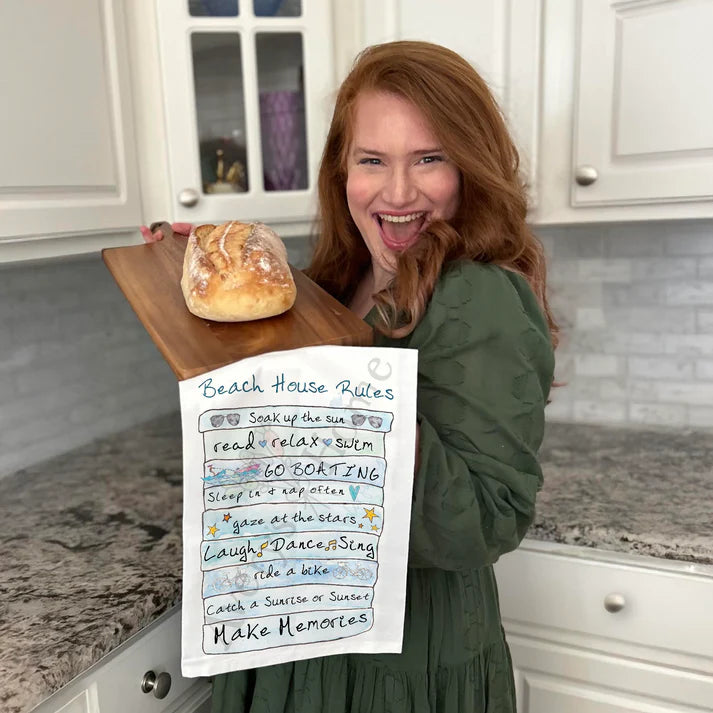 Beach House Rules
Soak up the sun
read relax swim
GO BOATING
Sleep in & nap often
gaze at the stars
Laugh Dance Sing
ride a bike
Catch a Sunrise or Sunset
Make Memories